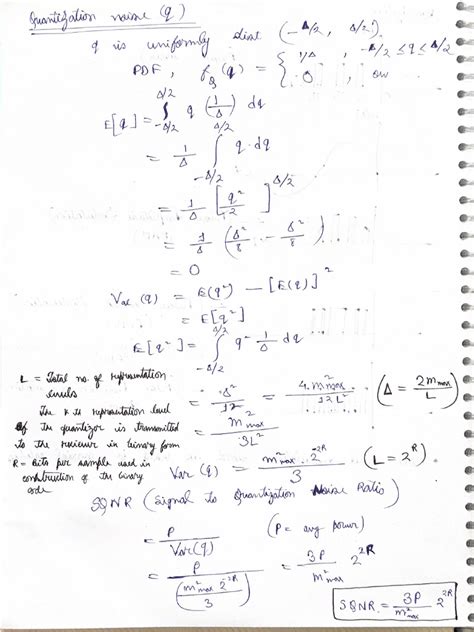 Quantization noise (q)
q is uniformly dist (-Δ/2, Δ/2).
PDF, f_Q(q) = { 1/Δ, -Δ/2 ≤ q ≤ Δ/2
0, ow
E[q] = ∫_{-Δ/2}^{Δ/2} q (1/Δ) dq
= 1/Δ ∫_{-Δ/2}^{Δ/2} q · dq
= 1/Δ [q²/2]^{Δ/2}
= 1/Δ (Δ²/8 - Δ²/8)
= 0
Var (q) = E(q²) - [E(q)]²
= E[q²]
E[q²] = ∫_{-Δ/2}^{Δ/2} q² 1/Δ dq
L = Total no. of representation
levels
= Δ²/12 = 4 m²max / 12 L² (Δ = 2m max / L)
The K is representation level
of the quantizer is transmitted
to the reciever in binary form
= m²max / 3L²
R = Bits per sample used in
construction of the binary
code
Var (q) = m²max · 2^{-2R} / 3 (L = 2^R)
SQNR (Signal to Quantization Noise Ratio)
= P / Var(q) (P = avg power)
= P / (m²max 2^{-2R} / 3) = 3P / m²max 2^{2R}
SQNR = 3P / m²max 2^{2R}